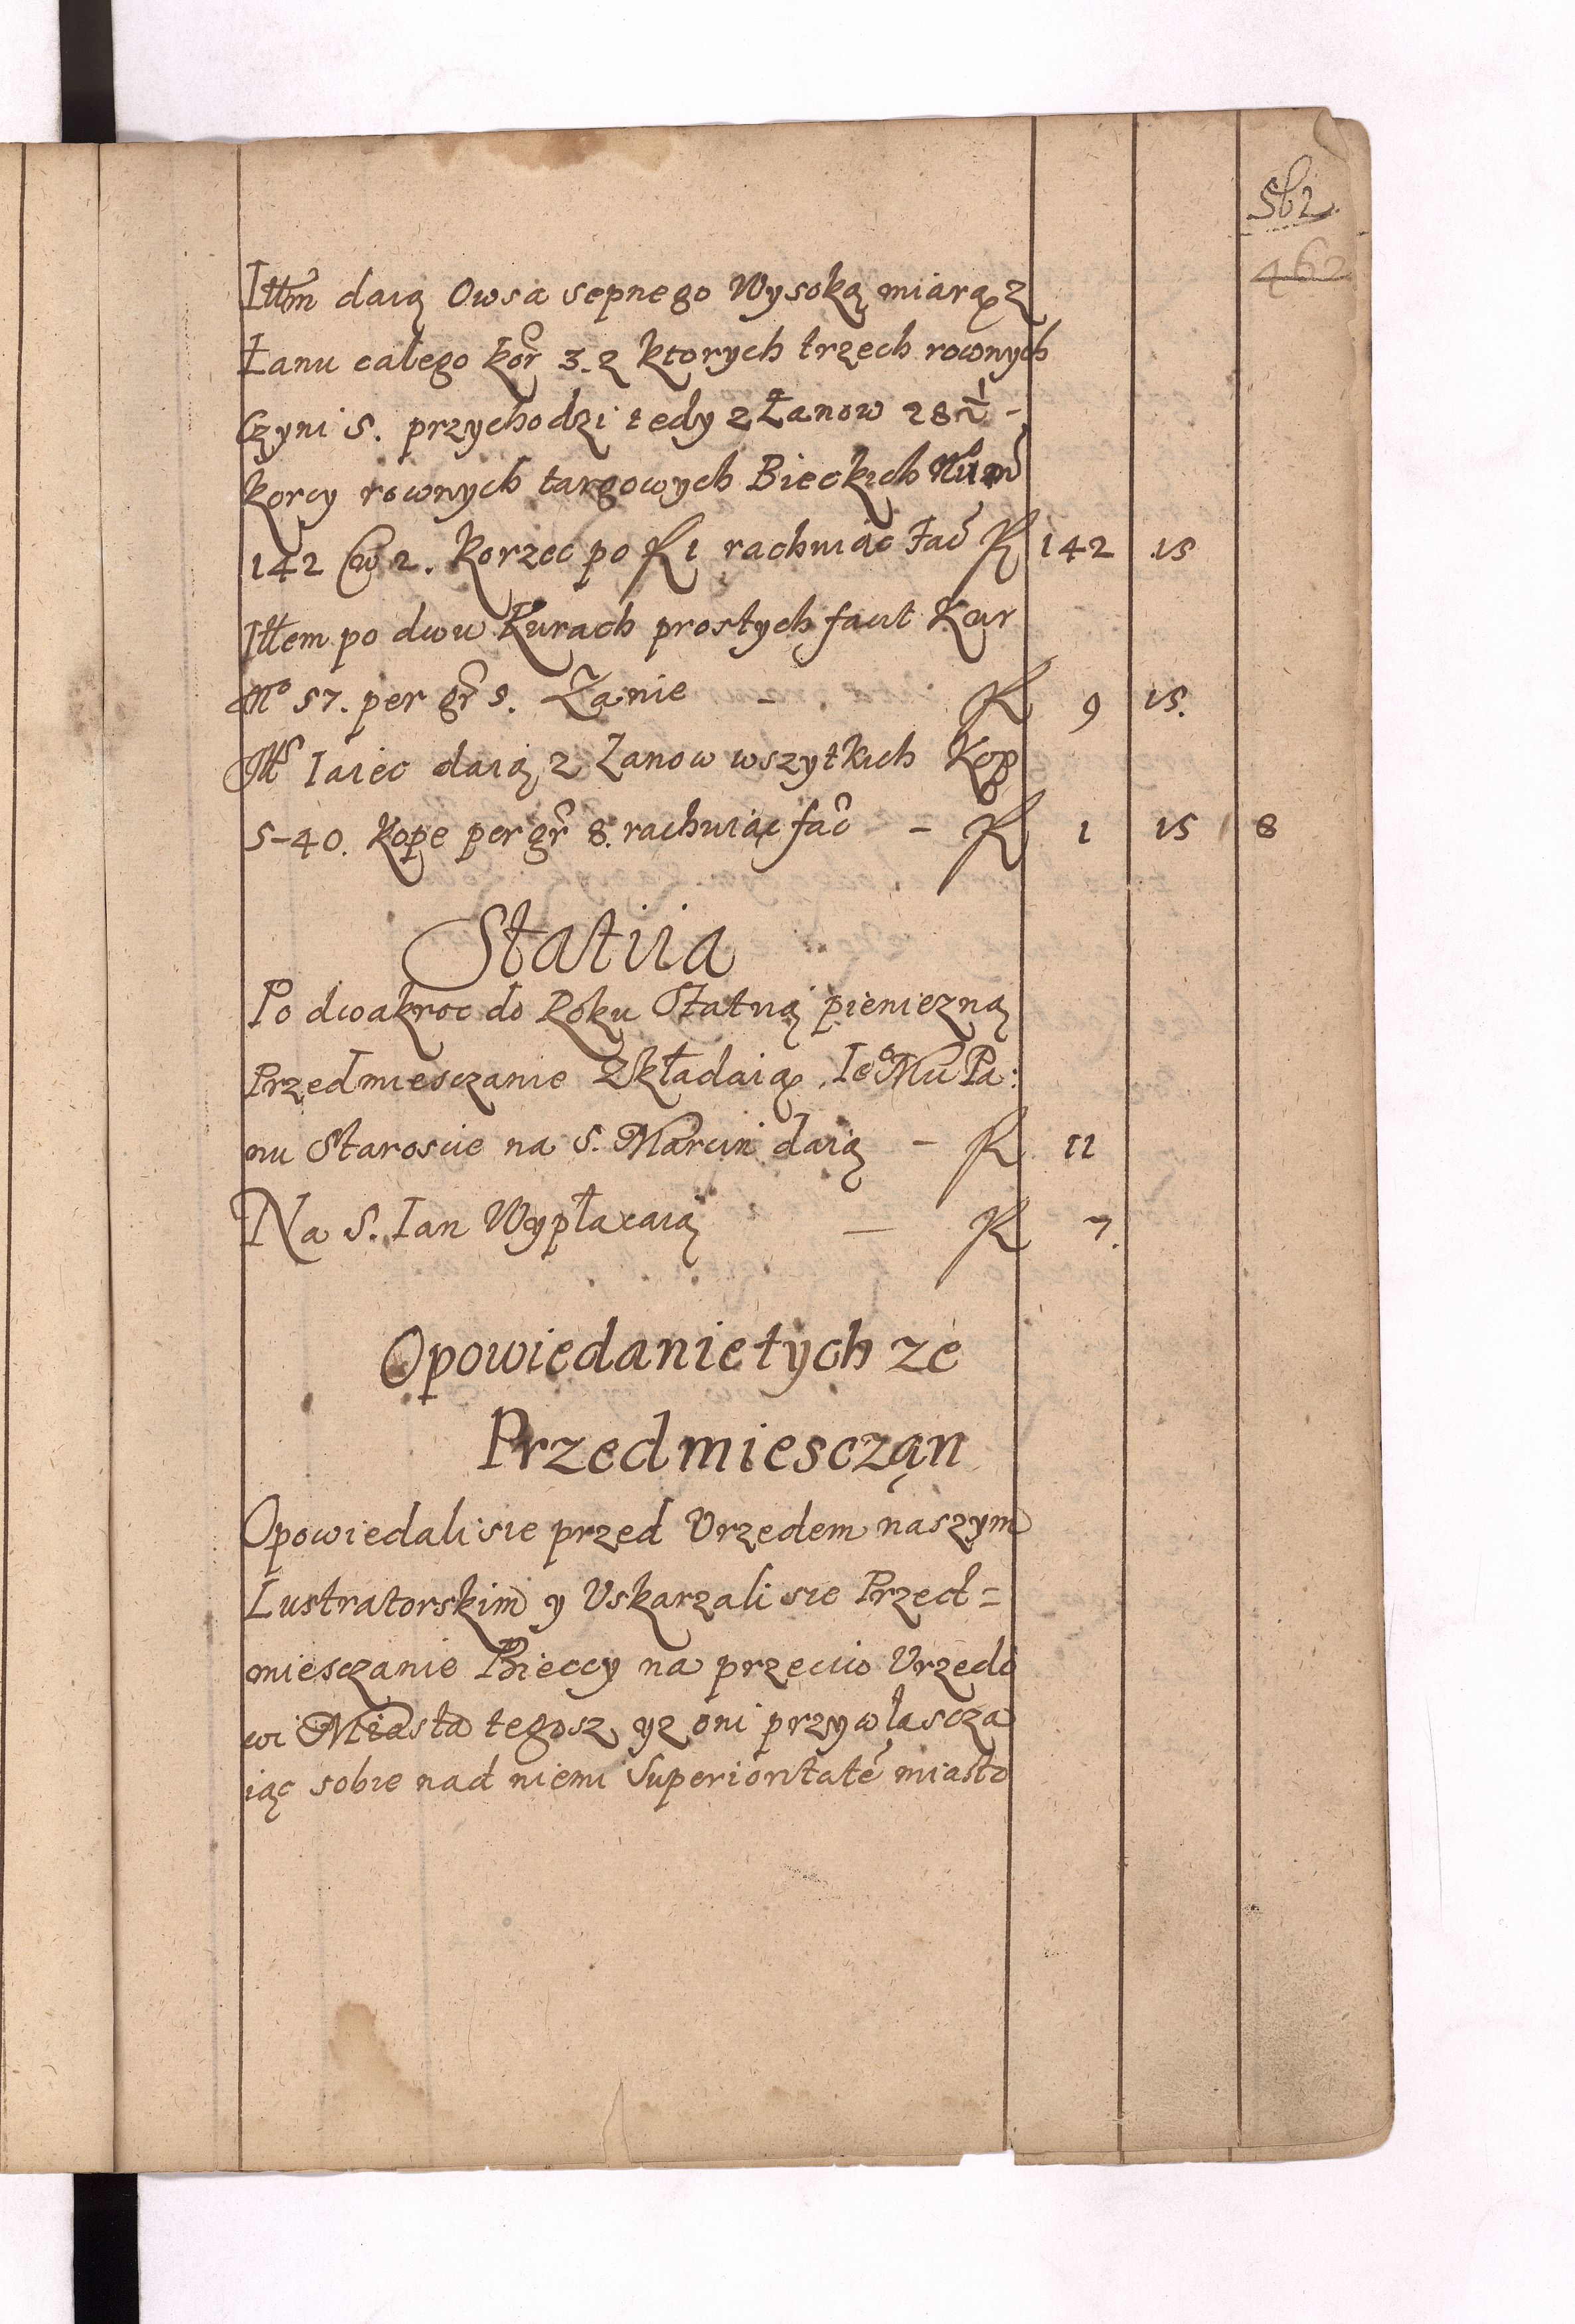 562
462
Ittm daią Owsa sepnego Wysoką miarą z
Łanu całego kor 3. z ktorych trzech rownych
Czyni 5. przychodzi tedy z Łanow 28 1/2 -
korcy rownych targowych Bieckich Num
142 Cw 2. Korzec po R 1 rachuiąc Fac R 142 15
Ittem po dwu Kurach prostych faut Kur
No 57. per gr 5. Łanie - R 9 15.
Itt Iaiec daią z Łanow wszytkich Kop
5-40. Kope per gr 8. rachuiąc fac - R 1 15 8
Statiia
Po dwakroc do Roku Statią pieniezną
Przedmiesczanie Składaią Ie Mu Pa:
nu Staroscie na S. Marcin daią - R 11
Na S. Ian Wypłacaią — R 7.
Opowiedanie tych ze
Przedmiescząn
Opowiedali sie przed Vrzedem naszym
Lustratorskim y Vskarzali sie Przed=
miesczanie Bieccy na przeciio Vrzedo
wi Miasta tegosz yz oni przywłascza
iąc sobie nad niemi Superioritaté miasto